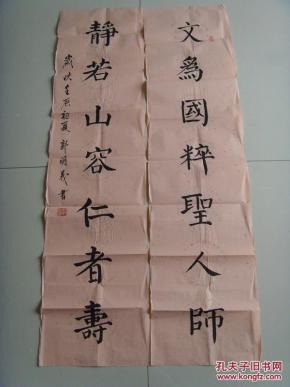 文為國粹聖人師
靜若山容仁者壽
歲次壬辰初夏 郭明義書
孔夫子旧书网